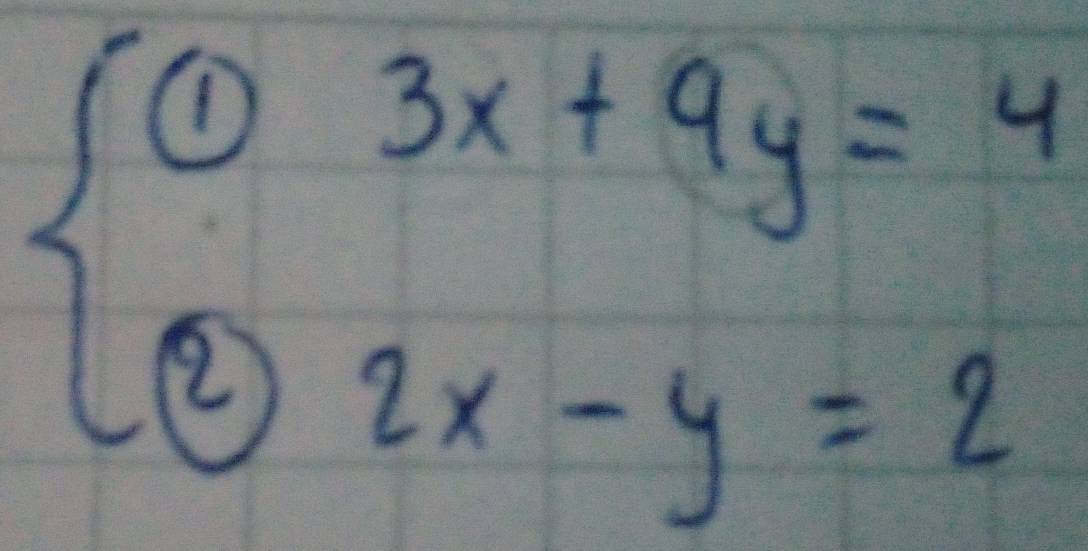 ① 3x + 9y = 4
② 2x - y = 2